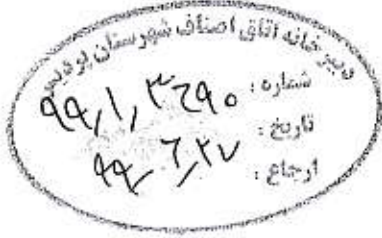 دبیرخانه اتاق اصناف شهرستان پردیس
شماره : ۹۹/۱/۳۶۹۰
تاریخ : ۹۹/۶/۲۷
ارجاع :